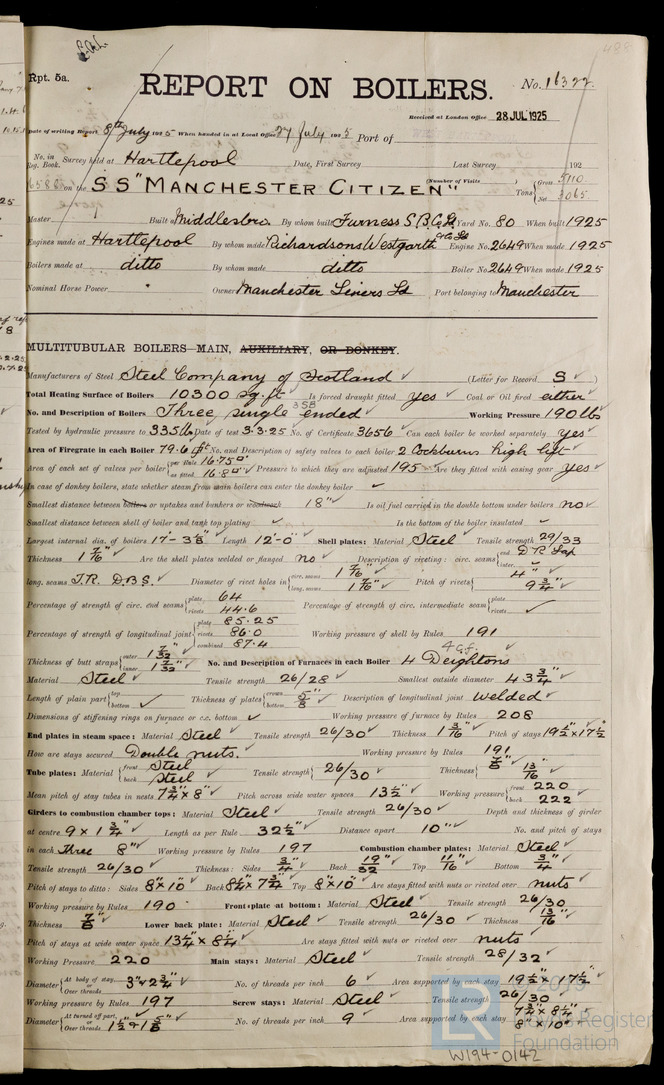 Rpt. 5a.
REPORT ON BOILERS.
No. 16322.
Received at London Office 28 JUL 1925
Date of writing Report 8th July 1925 When handed in at Local Office 27 July 1925 Port of
No. in Reg. Book. Survey held at Hartlepool Date, First Survey Last Survey 192
on the SS "MANCHESTER CITIZEN" (Number of Visits ) Tons { Gross 5110 Net 3065
Master Built at Middlesbro. By whom built Furness S.B.Co Ld Yard No. 80 When built 1925
Engines made at Hartlepool By whom made Richardsons Westgarth & Co Ld Engine No. 2649 When made 1925
Boilers made at ditto By whom made ditto Boiler No. 2649 When made 1925
Nominal Horse Power Owners Manchester Liners Ld Port belonging to Manchester
MULTITUBULAR BOILERS—MAIN, AUXILIARY, OR DONKEY.
Manufacturers of Steel Steel Company of Scotland (Letter for Record S )
Total Heating Surface of Boilers 10300 sq. ft Is forced draught fitted yes Coal or Oil fired either
No. and Description of Boilers Three single ended 3SB Working Pressure 190 lb
Tested by hydraulic pressure to 335 lb Date of test 3.3.25 No. of Certificate 3656 Can each boiler be worked separately yes
Area of Firegrate in each Boiler 79.6 ft No. and Description of safety valves to each boiler 2 Cockburns high lift
Area of each set of valves per boiler { per Rule 16.75 as fitted 16.80 Pressure to which they are adjusted 195 Are they fitted with easing gear yes
In case of donkey boilers, state whether steam from main boilers can enter the donkey boiler
Smallest distance between boilers or uptakes and bunkers or woodwork 18" Is oil fuel carried in the double bottom under boilers no
Smallest distance between shell of boiler and tank top plating Is the bottom of the boiler insulated
Largest internal dia. of boilers 17'-3 3/8" Length 12'-0" Shell plates: Material Steel Tensile strength 29/33
Thickness 1 7/16" Are the shell plates welded or flanged no Description of riveting: circ. seams { end D.R. Lap inter.
long. seams T.R. D.B.S. Diameter of rivet holes in { circ. seams 1 7/16" long. seams 1 7/16" Pitch of rivets { 4" 9 3/4"
Percentage of strength of circ. end seams { plate 64 rivets 44.6 Percentage of strength of circ. intermediate seam { plate rivets
Percentage of strength of longitudinal joint { plate 85.25 rivets 86.0 combined 87.4 Working pressure of shell by Rules 191
Thickness of butt straps { outer 1 7/32" inner 1 7/32" No. and Description of Furnaces in each Boiler 4 Deightons 4 c.f.
Material Steel Tensile strength 26/28 Smallest outside diameter 43 3/4"
Length of plain part { top bottom Thickness of plates { crown bottom 5/8" Description of longitudinal joint welded
Dimensions of stiffening rings on furnace or c.c. bottom Working pressure of furnace by Rules 208
End plates in steam space: Material Steel Tensile strength 26/30 Thickness 1 3/16" Pitch of stays 19 1/2" x 17 1/2"
How are stays secured Double nuts. Working pressure by Rules 191
Tube plates: Material { front Steel back Steel Tensile strength { 26/30 Thickness { 7/8" 13/16"
Mean pitch of stay tubes in nests 7 3/4" x 8" Pitch across wide water spaces 13 1/2" Working pressure { front 220 back 222
Girders to combustion chamber tops: Material Steel Tensile strength 26/30 Depth and thickness of girder
at centre 9 x 1 3/4" Length as per Rule 32 1/2" Distance apart 10" No. and pitch of stays
in each three 8" Working pressure by Rules 197 Combustion chamber plates: Material Steel
Tensile strength 26/30 Thickness: Sides 3/4" Back 19/32" Top 11/16" Bottom 3/4"
Pitch of stays to ditto: Sides 8" x 10" Back 8 1/4" x 7 3/4" Top 8" x 10" Are stays fitted with nuts or riveted over nuts
Working pressure by Rules 190 Front plate at bottom: Material Steel Tensile strength 26/30
Thickness 7/8" Lower back plate: Material Steel Tensile strength 26/30 Thickness 13/16"
Pitch of stays at wide water space 13 1/4" x 8 1/4" Are stays fitted with nuts or riveted over nuts
Working Pressure 220 Main stays: Material Steel Tensile strength 28/32
Diameter { At body of stay, or Over threads 3" & 2 3/4" No. of threads per inch 6 Area supported by each stay 19 1/2" x 17 1/2"
Working pressure by Rules 197 Screw stays: Material Steel Tensile strength 26/30
Diameter { At turned off part, or Over threads 1 1/2" & 1 5/8" No. of threads per inch 9 Area supported by each stay 7 3/4" x 8 1/4" 8" x 10"
Lloyd's Register
Foundation
W194-0142